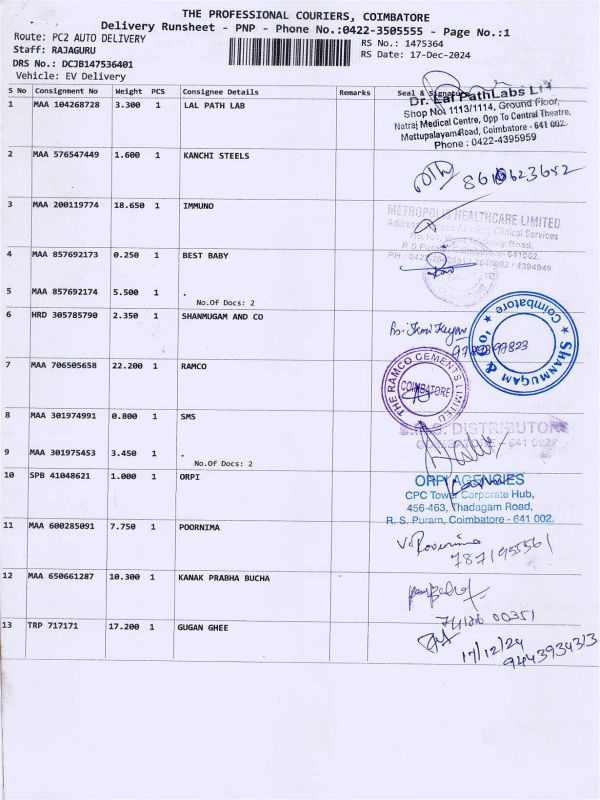 THE PROFESSIONAL COURIERS, COIMBATORE
Delivery Runsheet - PNP - Phone No.:0422-3505555 - Page No.:1
Route: PC2 AUTO DELIVERY
Staff: RAJAGURU
DRS No.: DCJB147536401
Vehicle: EV Delivery
RS No.: 1475364
RS Date: 17-Dec-2024
S No Consignment No Weight PCS Consignee Details Remarks Seal & Signature
1 MAA 104268728 3.300 1 LAL PATH LAB
Dr. Lal PathLabs Ltd
Shop No. 1113/1114, Ground Floor,
Natraj Medical Centre, Opp To Central Theatre,
Mettupalayam Road, Coimbatore - 641 002.
Phone : 0422-4395959
2 MAA 576547449 1.600 1 KANCHI STEELS
3 MAA 200119774 18.650 1 IMMUNO
METROPOLIS HEALTHCARE LIMITED
R.S.Puram, Coimbatore - 641002.
4 MAA 857692173 0.250 1 BEST BABY
5 MAA 857692174 5.500 1 .
No.Of Docs: 2
6 HRD 305785790 2.350 1 SHANMUGAM AND CO
SHANMUGAM & CO
Coimbatore
7 MAA 706505658 22.200 1 RAMCO
THE RAMCO CEMENTS LIMITED
COIMBATORE
8 MAA 301974991 0.800 1 SMS
S.M.S. DISTRIBUTORS
9 MAA 301975453 3.450 1 .
No.Of Docs: 2
10 SPB 41048621 1.000 1 ORPI
ORPI AGENCIES
CPC Tower Corporate Hub,
456-463, Thadagam Road,
R. S. Puram, Coimbatore - 641 002.
11 MAA 600285091 7.750 1 POORNIMA
7871955561
12 MAA 650661287 10.300 1 KANAK PRABHA BUCHA
13 TRP 717171 17.200 1 GUGAN GHEE
17/12/24
9443934313